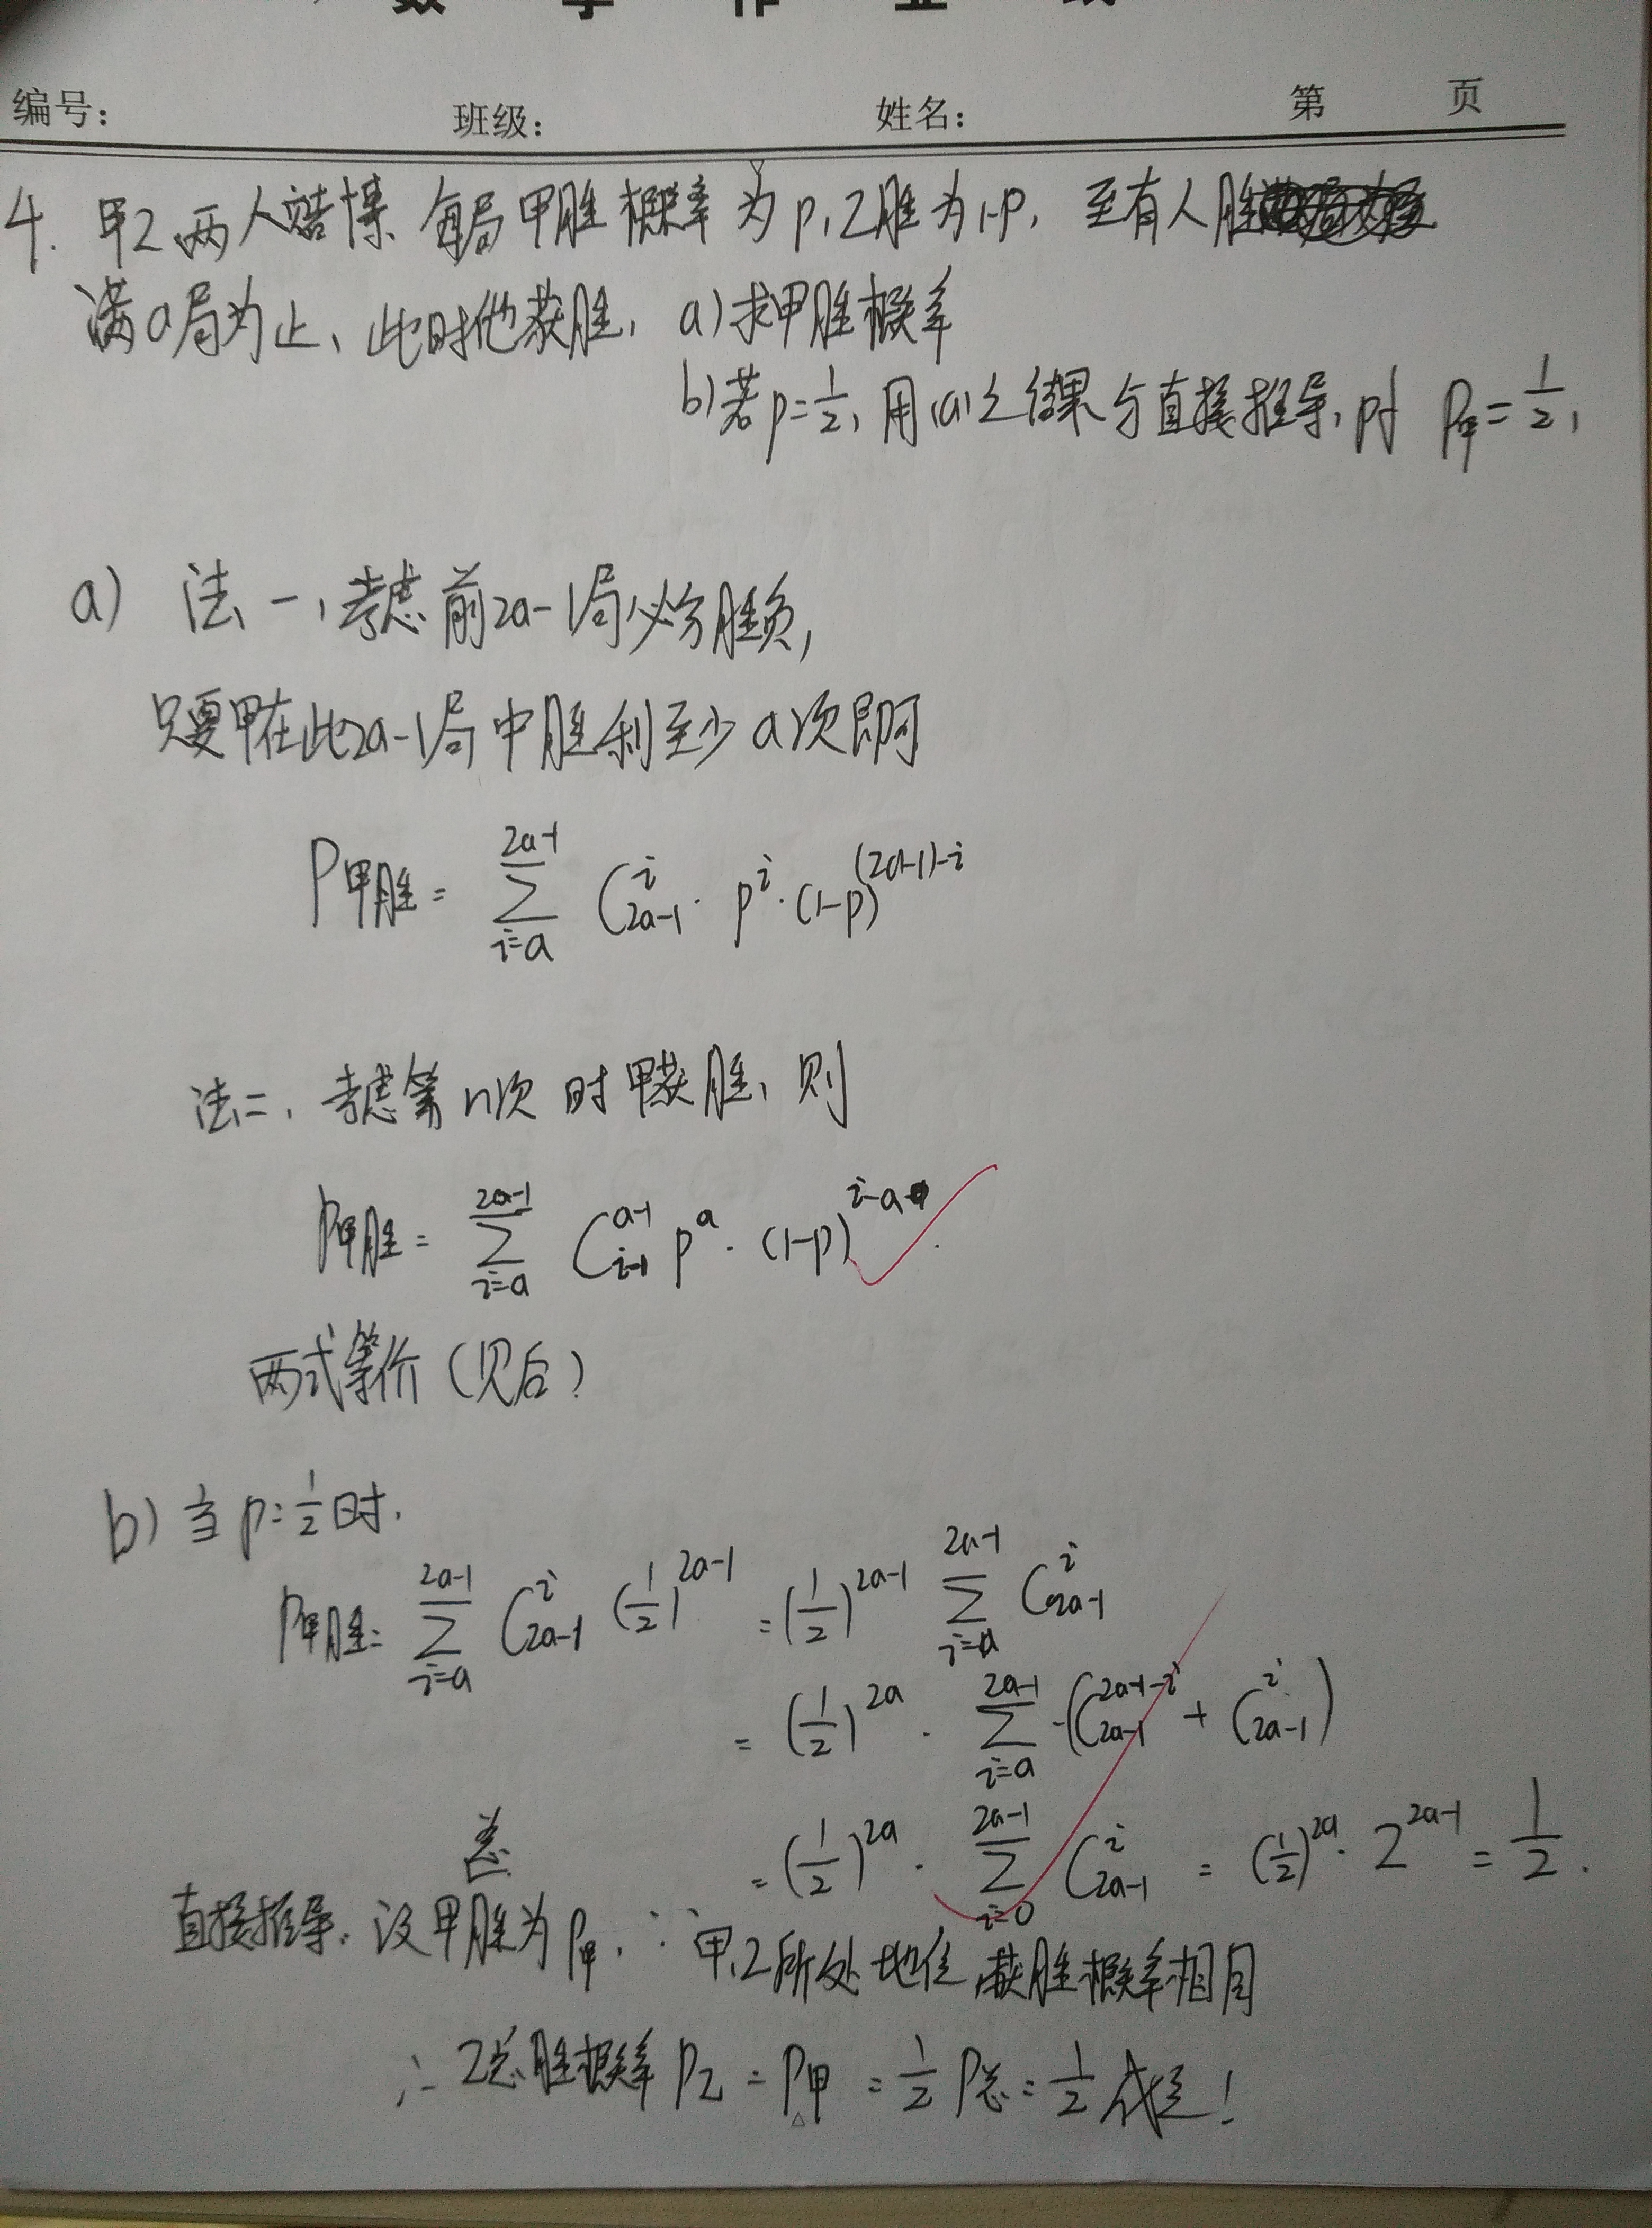 数学作业纸
编号: 班级: 姓名: 第 页
4. 甲乙两人赌博、每局甲胜概率为p,乙胜为1-p, 至有人胜
满a局为止、此时他获胜, a)求甲胜概率
b)若p=1/2, 用(a)之结果与直接推导, 时 P甲=1/2,
a) 法一,考虑前2a-1局必分胜负,
只要甲在此2a-1局中胜利至少a次即可
P甲胜= ∑_{i=a}^{2a-1} C_{2a-1}^{i}·p^{i}·(1-p)^{(2a-1)-i}
法二、考虑第n次时甲获胜、则
P甲胜= ∑_{i=a}^{2a-1} C_{i-1}^{a-1} p^{a}·(1-p)^{i-a}.
两式等价(见后)
b)当p=1/2时.
P甲胜= ∑_{i=a}^{2a-1} C_{2a-1}^{i} (1/2)^{2a-1} =(1/2)^{2a-1} ∑_{i=a}^{2a-1} C_{2a-1}^{i}
= (1/2)^{2a}·∑_{i=a}^{2a-1}·(C_{2a-1}^{2a-1-i} + C_{2a-1}^{i})
= (1/2)^{2a}·∑_{i=0}^{2a-1} C_{2a-1}^{i} = (1/2)^{2a}·2^{2a-1} = 1/2.
直接推导: 设甲总胜为P甲, ∵甲,乙所处地位,获胜概率相同
∴乙总胜概率P乙=P甲=1/2 P总=1/2 成立!